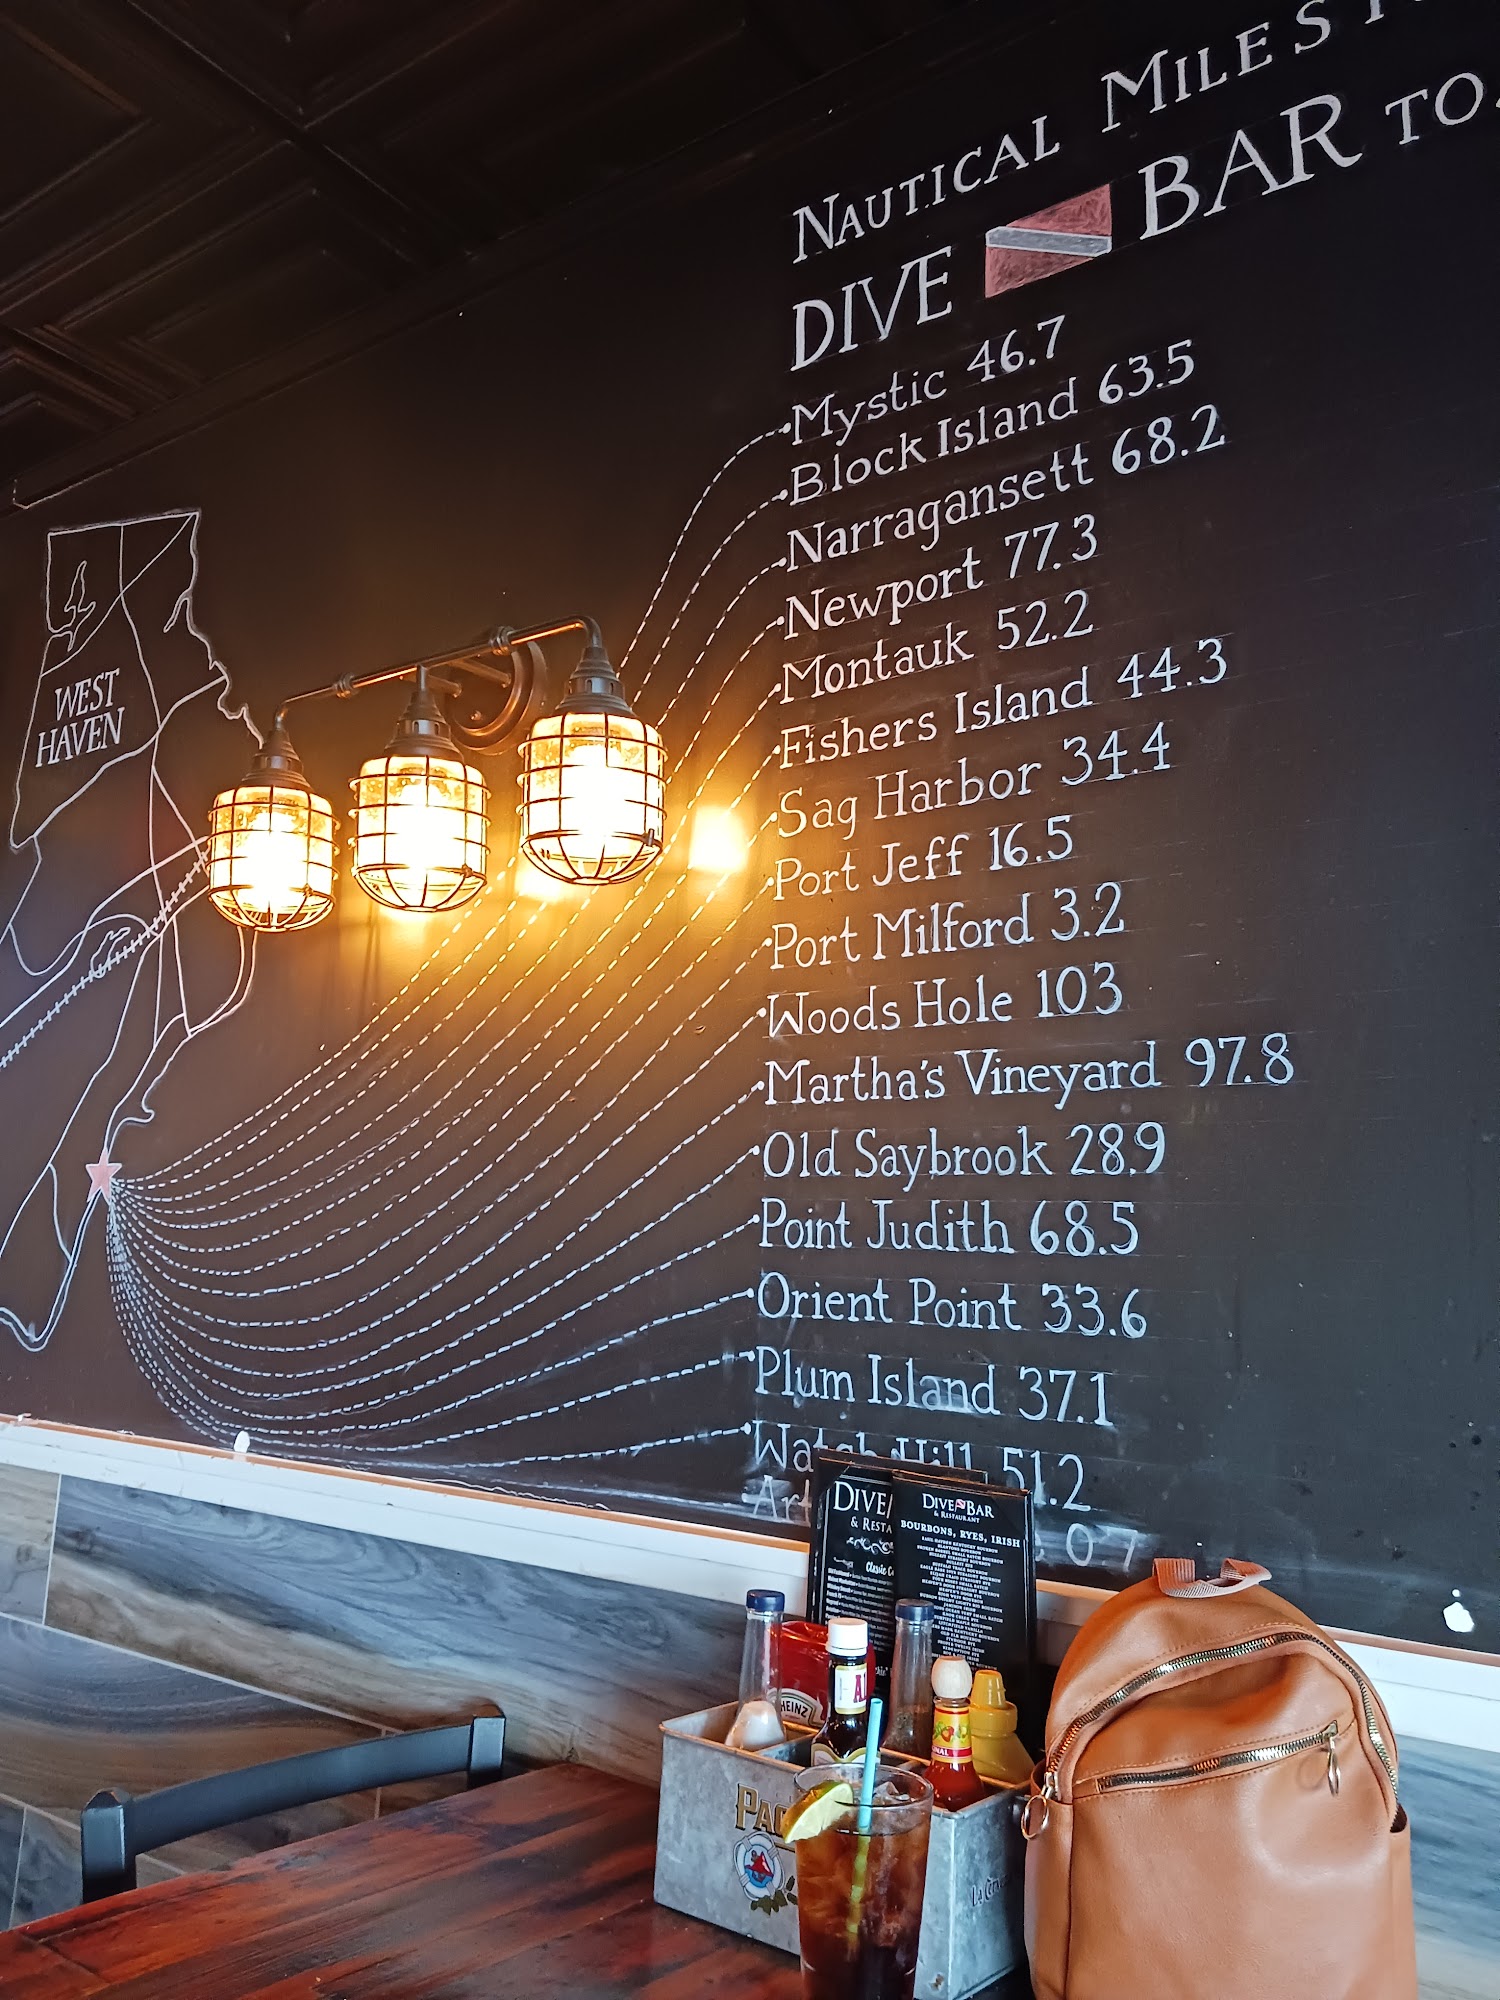 NAUTICAL MILES
DIVE BAR TO
Mystic 46.7
Block Island 63.5
Narragansett 68.2
Newport 77.3
Montauk 52.2
Fishers Island 44.3
Sag Harbor 34.4
Port Jeff 16.5
Port Milford 3.2
Woods Hole 103
Martha's Vineyard 97.8
Old Saybrook 28.9
Point Judith 68.5
Orient Point 33.6
Plum Island 37.1
Watch Hill 51.2
07
WEST
HAVEN
DIVE
&
DIVE BAR
& RESTAURANT
BOURBONS, RYES, IRISH
HEINZ